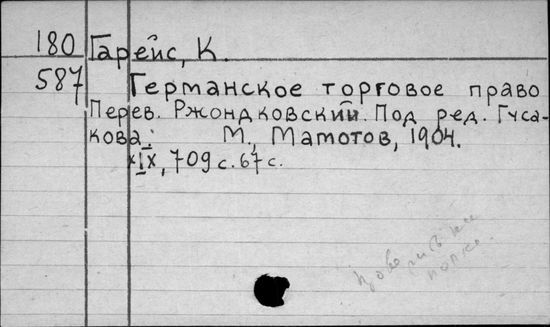 180 Гарейс, К.
587 Германское торговое право
Перев. Ржондковский. Под ред. Гуса-
кова. М., Маmотов, 1904.
XIX, 709 с. 67 с.